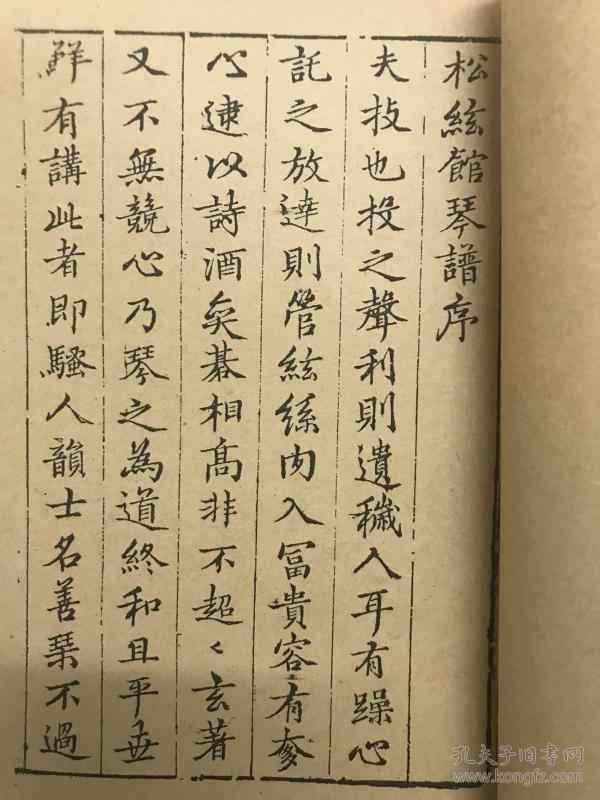 松絃館琴譜序
夫技也投之聲利則遺穢入耳有躁心
託之放達則管絃絲肉入冨貴容有奓
心逮以詩酒奕棊相髙非不超〻玄著
又不無競心乃琴之為道終和且平世
鮮有講此者即騷人韻士名善琹不過
孔夫子旧书网
www.kongfz.com